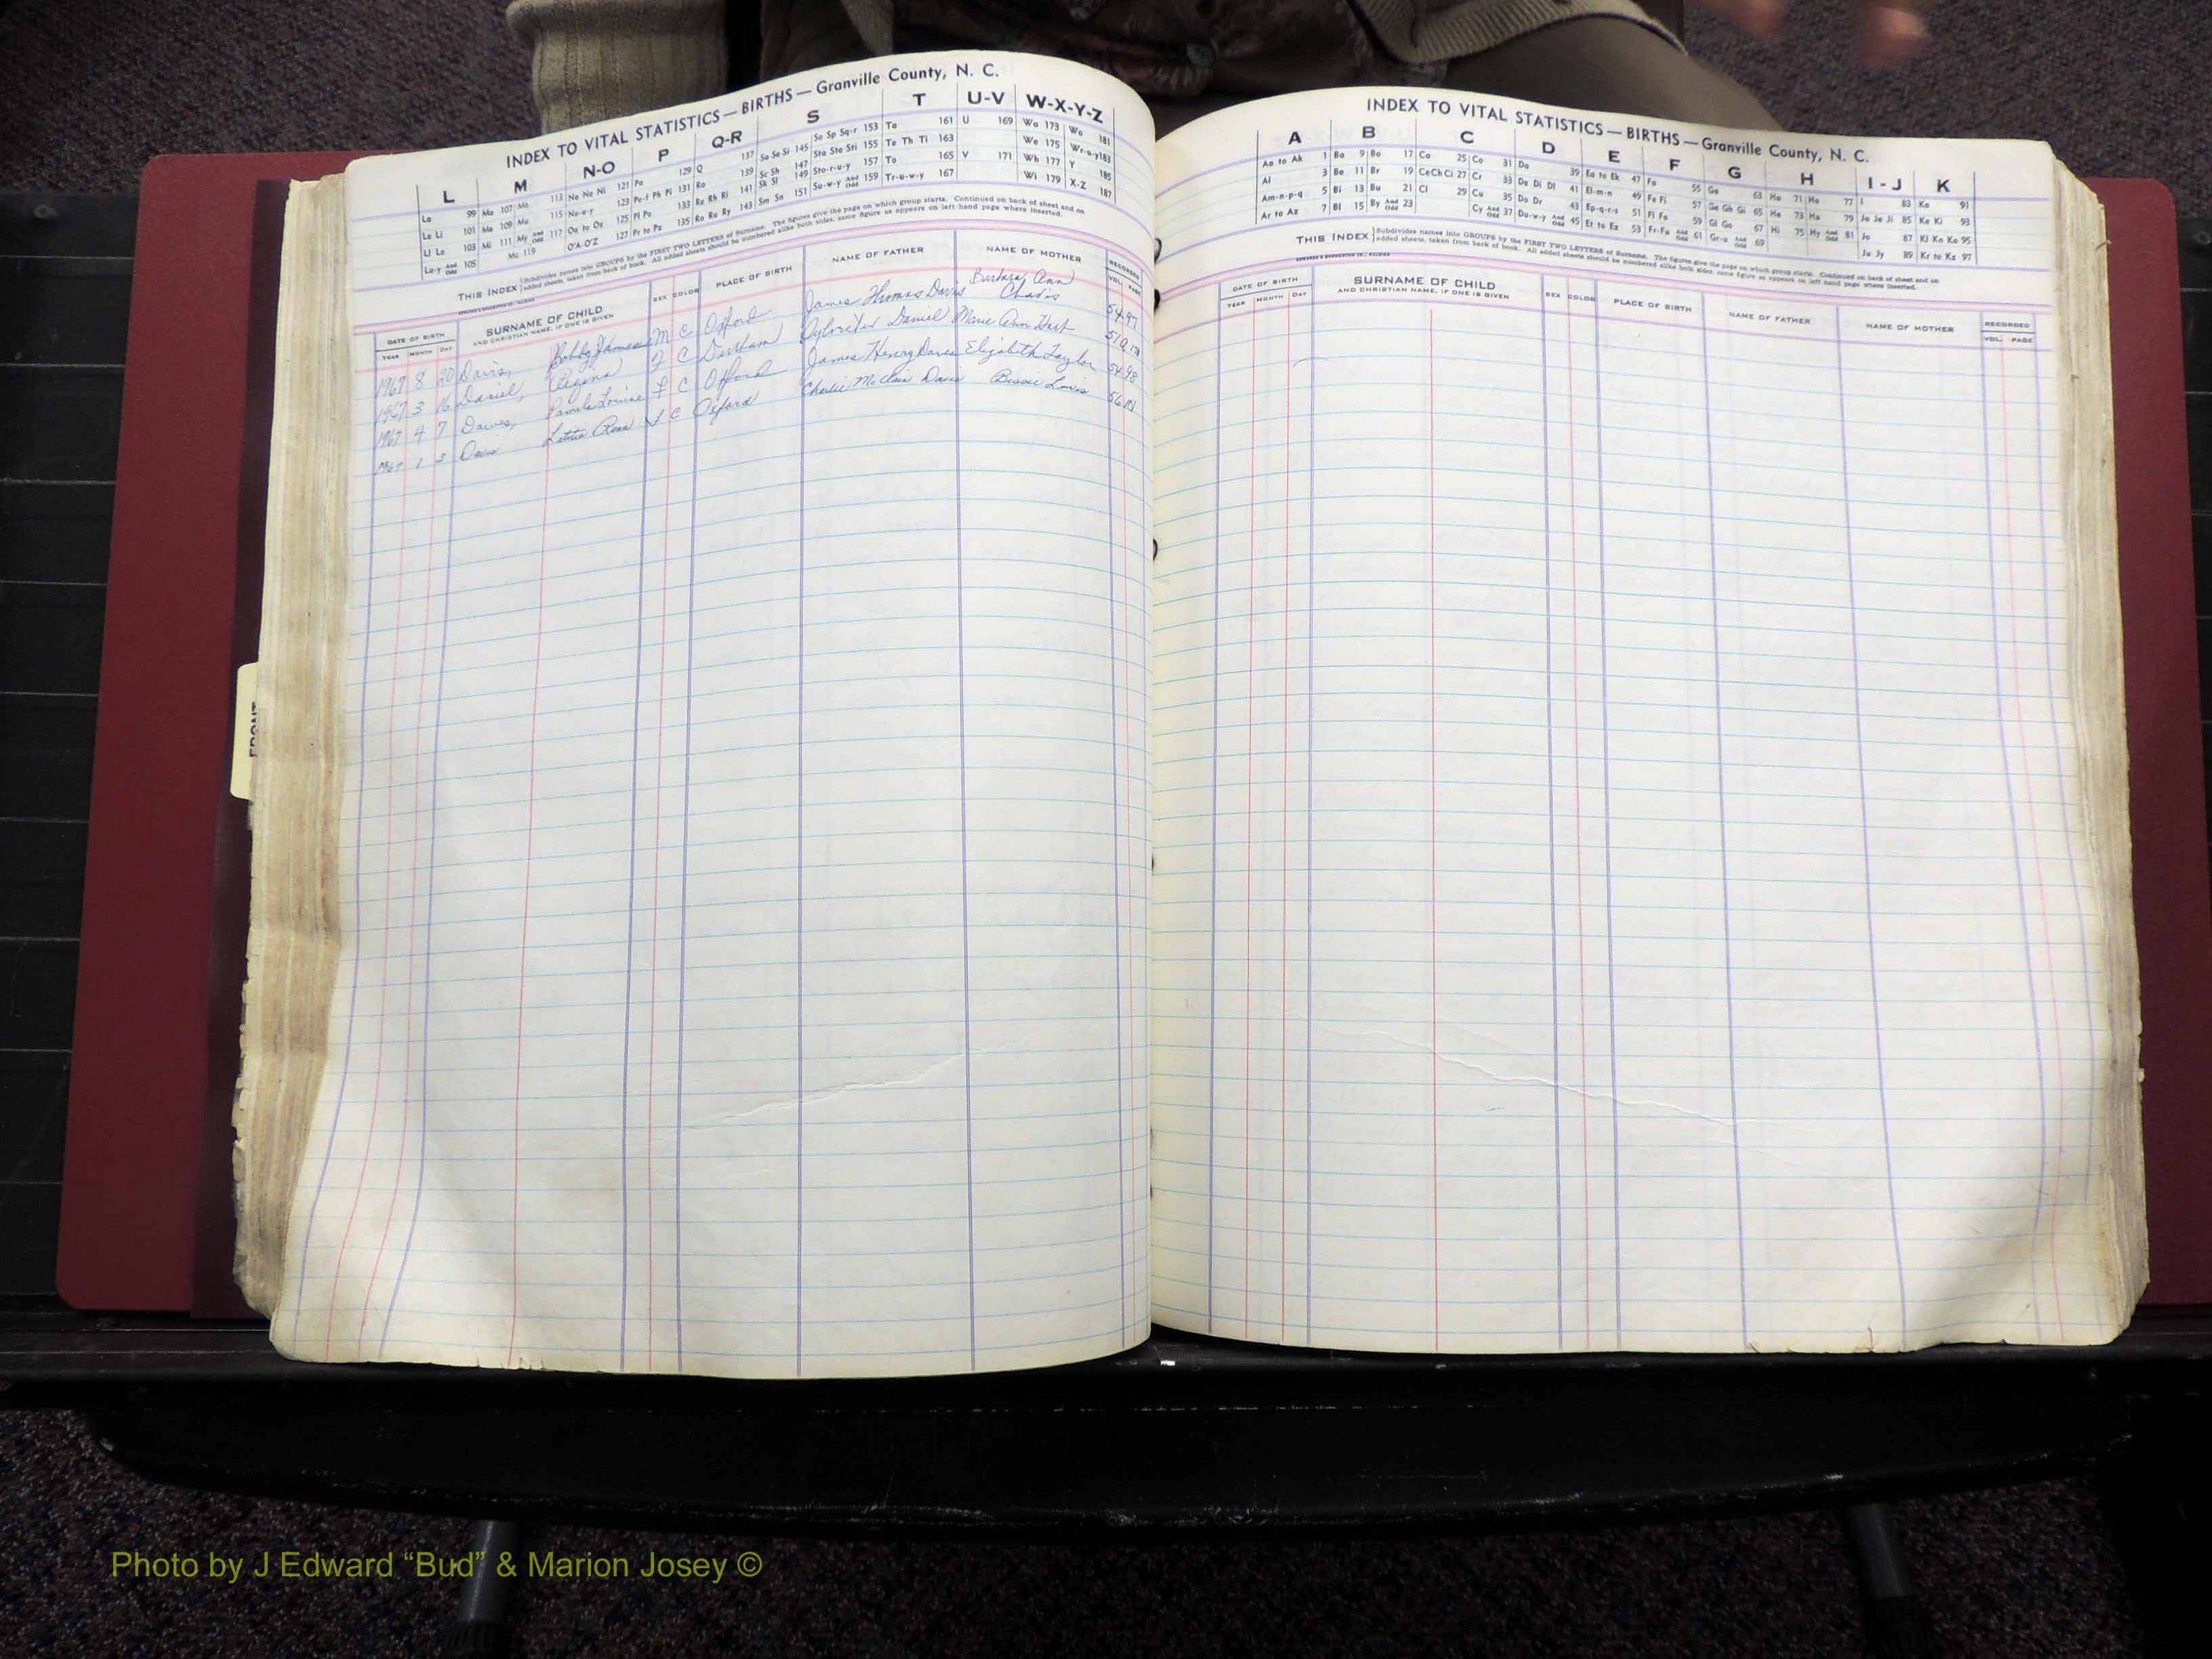 INDEX TO VITAL STATISTICS — BIRTHS — Granville County, N. C.
L M N-O P Q-R S T U-V W-X-Y-Z
La 99 Ma 107 Mo 113 Na Ne Ni 121 Pa 129 Q 137 Sa Se Si 145 So Sp Sq-r 153 Ta 161 U 169 Wa 173 Wo 181
Le Li 101 Me 109 Mu 115 No-u-y 123 Pe-f Ph Pi 131 Ra 139 Sc Sh 147 Sta Ste Sti 155 Te Th Ti 163 We 175 Wr-u-y 183
Ll Lo 103 Mi 111 My And Odd 117 Oa to Oz 125 Pl Po 133 Re Rh Ri 141 Sk Sl 149 Sto-r-u-y 157 To 165 V 171 Wh 177 Y 185
Lu-y And Odd 105 Mc 119 O'A-O'Z 127 Pr to Pz 135 Ro Ru Ry 143 Sm Sn 151 Su-w-y And Odd 159 Tr-u-w-y 167 Wi 179 X-Z 187
THIS INDEX Subdivides names into GROUPS by the FIRST TWO LETTERS of Surname. The figures give the page on which group starts. Continued on back of sheet and on
added sheets, taken from back of book. All added sheets should be numbered alike both sides, same figure as appears on left hand page where inserted.
DATE OF BIRTH SURNAME OF CHILD SEX COLOR PLACE OF BIRTH NAME OF FATHER NAME OF MOTHER RECORDED
YEAR MONTH DAY AND CHRISTIAN NAME, IF ONE IS GIVEN VOL. PAGE
1967 8 20 Davis, Bobby James M C Oxford James Thomas Davis Barbara Ann 54 97
1967 3 16 Daniel, Regina F C Durham Sylvester Daniel Marie Ann Hart
1967 4 7 Davis, Pamela Louise F C Oxford James Henry Davis Elizabeth Taylor 54 98
1967 1 3 Davis Letitia Rena F C Oxford Charlie McClain Davis Bessie Lewis
INDEX TO VITAL STATISTICS — BIRTHS — Granville County, N. C.
A B C D E F G H I - J K
Aa to Ak 1 Ba 9 Bo 17 Ca 25 Co 31 Da 39 Ea to Ek 47 Fa 55 Ga 63 Ha 71 Ho 77 I 83 Ka 91
Al 3 Be 11 Br 19 Ce Ch Ci 27 Cr 33 De Di Dl 41 El-m-n 49 Fe Fi 57 Ge Gh Gi 65 He 73 Hu 79 Ja Je Ji 85 Ke Ki 93
Am-n-p-q 5 Bi 13 Bu 21 Cl 29 Cu 35 Do Dr 43 Ep-q-r-s 51 Fl Fo 59 Gl Go 67 Hi 75 Hy And Odd 81 Jo 87 Kl Kn Ko 95
Ar to Az 7 Bl 15 By And Odd 23 Cy And Odd 37 Du-w-y And Odd 45 Et to Ez 53 Fr-Fu And Odd 61 Gr-u And Odd 69 Ju Jy 89 Kr to Kz 97
THIS INDEX Subdivides names into GROUPS by the FIRST TWO LETTERS of Surname. The figures give the page on which group starts. Continued on back of sheet and on
added sheets, taken from back of book. All added sheets should be numbered alike both sides, same figure as appears on left hand page where inserted.
DATE OF BIRTH SURNAME OF CHILD SEX COLOR PLACE OF BIRTH NAME OF FATHER NAME OF MOTHER RECORDED
YEAR MONTH DAY AND CHRISTIAN NAME, IF ONE IS GIVEN VOL. PAGE
FRONT
Photo by J Edward “Bud” & Marion Josey ©